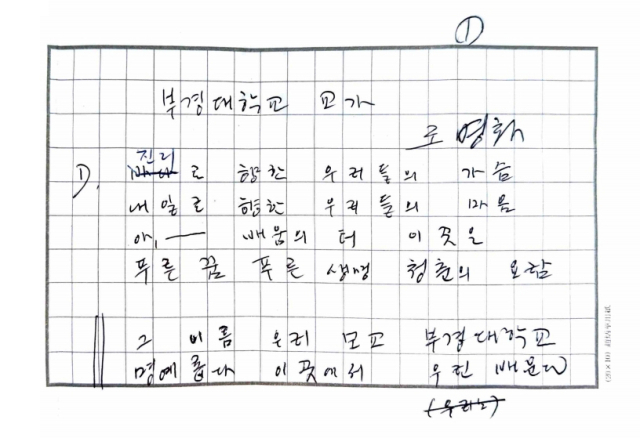 ①
부경대학교 교가
로 영화
1). 진리로 향한 우리들의 가슴
내일로 향한 우리들의 마음
아,── 배움의 터 이곳은
푸른 꿈 푸른 생명 청춘의 요람
그 이름 우리 모교 부경대학교
명예롭다 이곳에서 우린 배운다
(우리는)